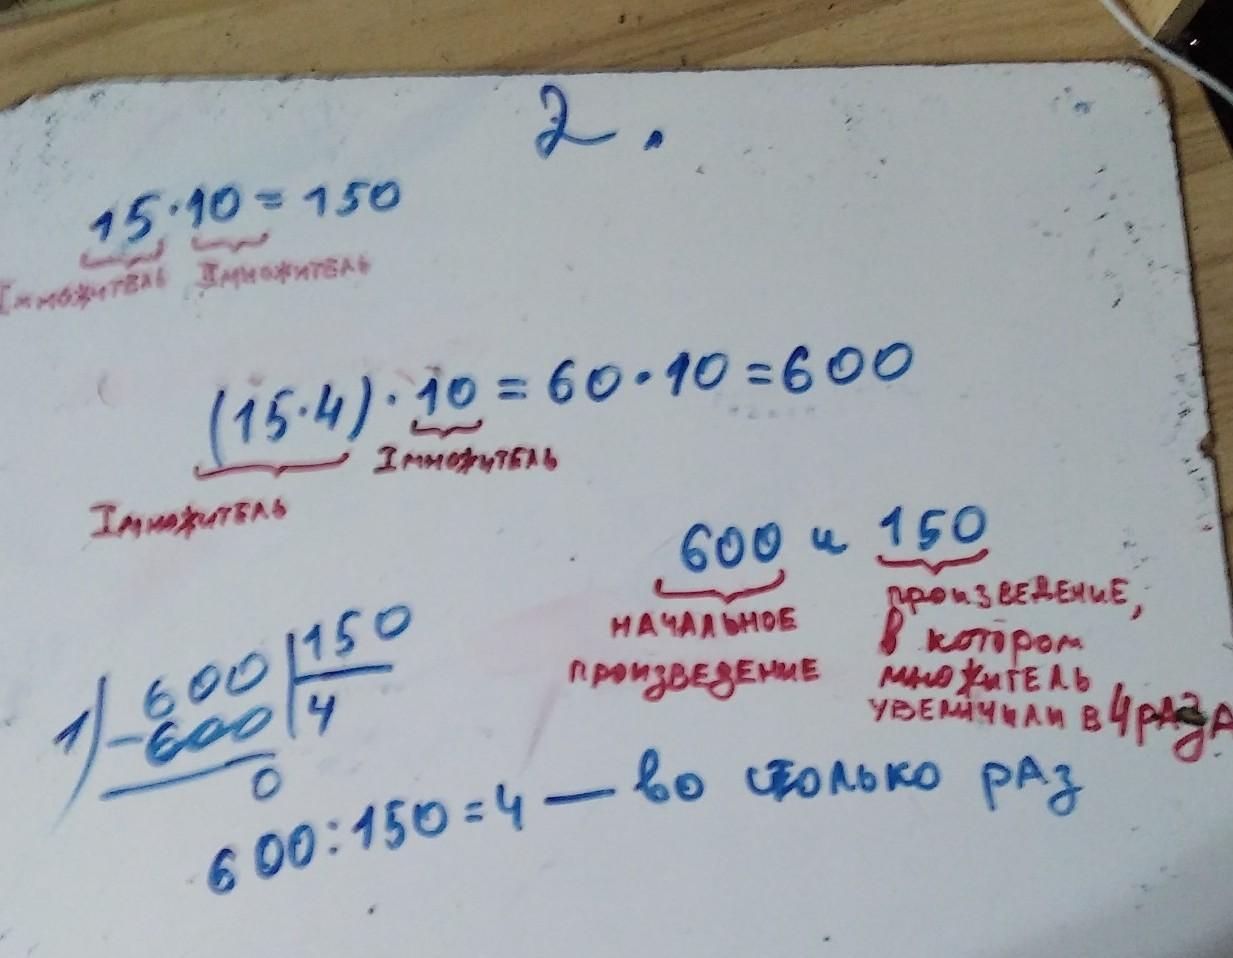 2.
15·10=150
Iмножитель IIмножитель
(15·4)·10=60·10=600
Iмножитель
Iмножитель
600 и 150
начальное произведение
произведение, в котором множитель увеличили в 4 раза
1) 600 150
-600 4
0
600:150=4 — во столько раз